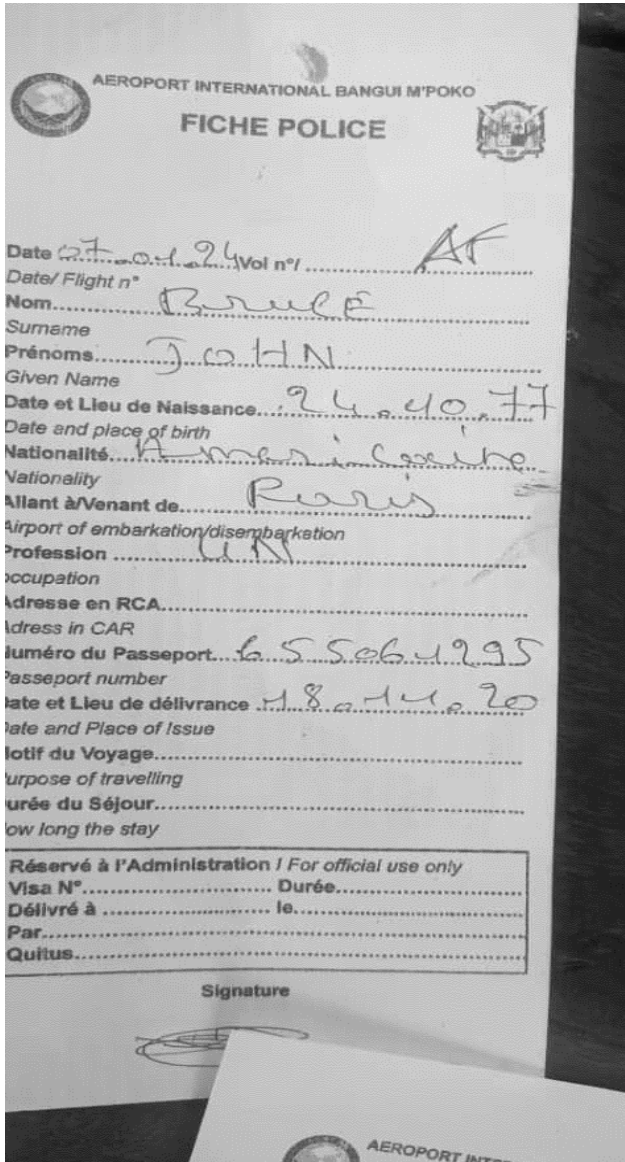 AEROPORT INTERNATIONAL BANGUI M'POKO
FICHE POLICE
Date 07.01.24 Vol n°/ AF
Date/ Flight n°
Nom BRULÉ
Surname
Prénoms JOHN
Given Name
Date et Lieu de Naissance 24.10.77
Date and place of birth
Nationalité Americaine
Nationality
Allant à/Venant de Paris
Airport of embarkation/disembarkation
Profession UN
occupation
Adresse en RCA
Adress in CAR
Numéro du Passeport 655061295
Passeport number
Date et Lieu de délivrance 18.11.20
Date and Place of Issue
Motif du Voyage
Purpose of travelling
Durée du Séjour
ow long the stay
Réservé à l'Administration / For official use only
Visa N° Durée
Délivré à le
Par
Quitus
Signature
AEROPORT